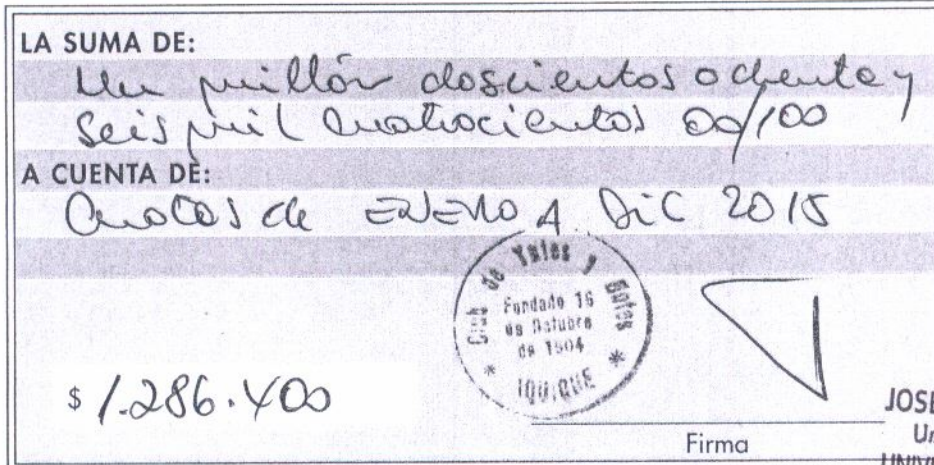 LA SUMA DE:
Un millón doscientos ochenta y
seis mil cuatrocientos 00/100
A CUENTA DE:
Cuotas de ENERO A DIC 2015
Club de Yates y Botes
Fundado 16
de Octubre
de 1904
* IQUIQUE *
$ 1.286.400
Firma
JOSE
Un
UNIV